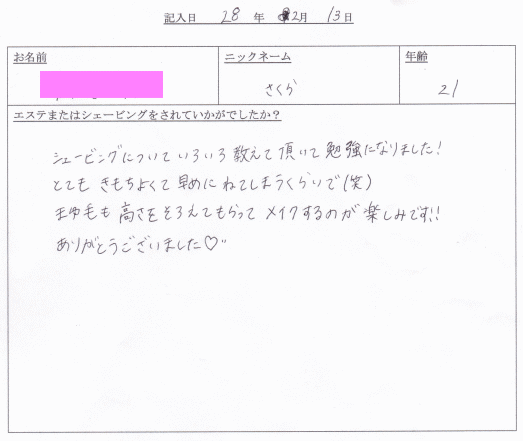 記入日 28 年 2月 13日
お名前 ニックネーム 年齢
さくら 21
エステまたはシェービングをされていかがでしたか？
シェービングについていろいろ教えて頂いて勉強になりました!
とても きもちよくて 早めに ねてしまうくらいで(笑)
まゆ毛も 高さを そろえてもらって メイクするのが 楽しみです!!
ありがとうございました♡